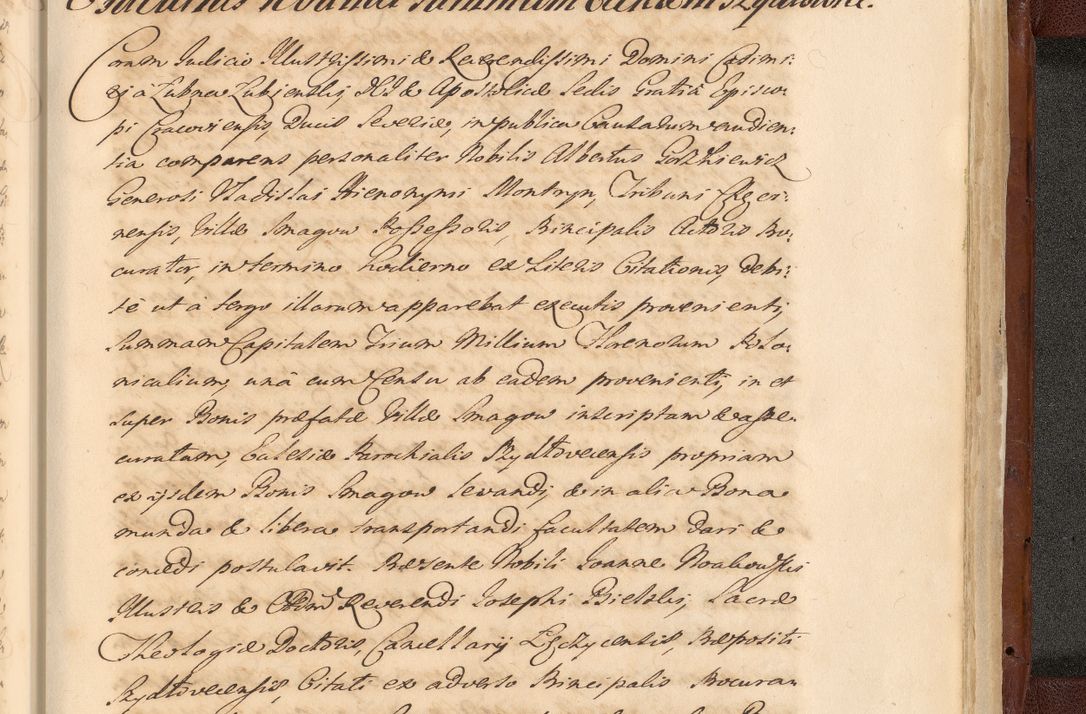 Coram Judicio Illustrissimi & Reverendissimi Domini Casimi:
ri à Łubna Łubienski DEI & Apostolicæ Sedis Gratiâ Episco:
pi Cracoviensis, Ducis Severiæ, in publica Causarum audien:
tia comparens personaliter Nobilis Albertus Gorzkiewicz
Generosi Vladislai Hieronymi Montryn, Tribuni
nensis, Villæ Smagow Possessoris, Principalis Actoris Pro:
curator, in termino hodierno ex Literis Citationis, debi:
tè ut à tergo illarum apparebat executis provenienti,
Summam Capitalem Trium Millium Florenorum Polo:
nicalium, unâ cum Censu ab eadem provenienti, in et
super Bonis præfatæ Villæ Smagow inscriptam & asse:
curatam, Ecclesiæ Parochialis Szydłoviecensis propriam
ex ijsdem Bonis Smagow levandi, & in alia Bona
munda & libera transportandi facultatem dari &
concedi postulavit. Præsente Nobili Joanne Noakowski
Illustris & Admodum Reverendi Josephi Bielski, Sacræ
Theologiæ Doctoris, Cancellarij Præpositi
Szydłoviecensis, Citati ex adverso Principalis Procuran